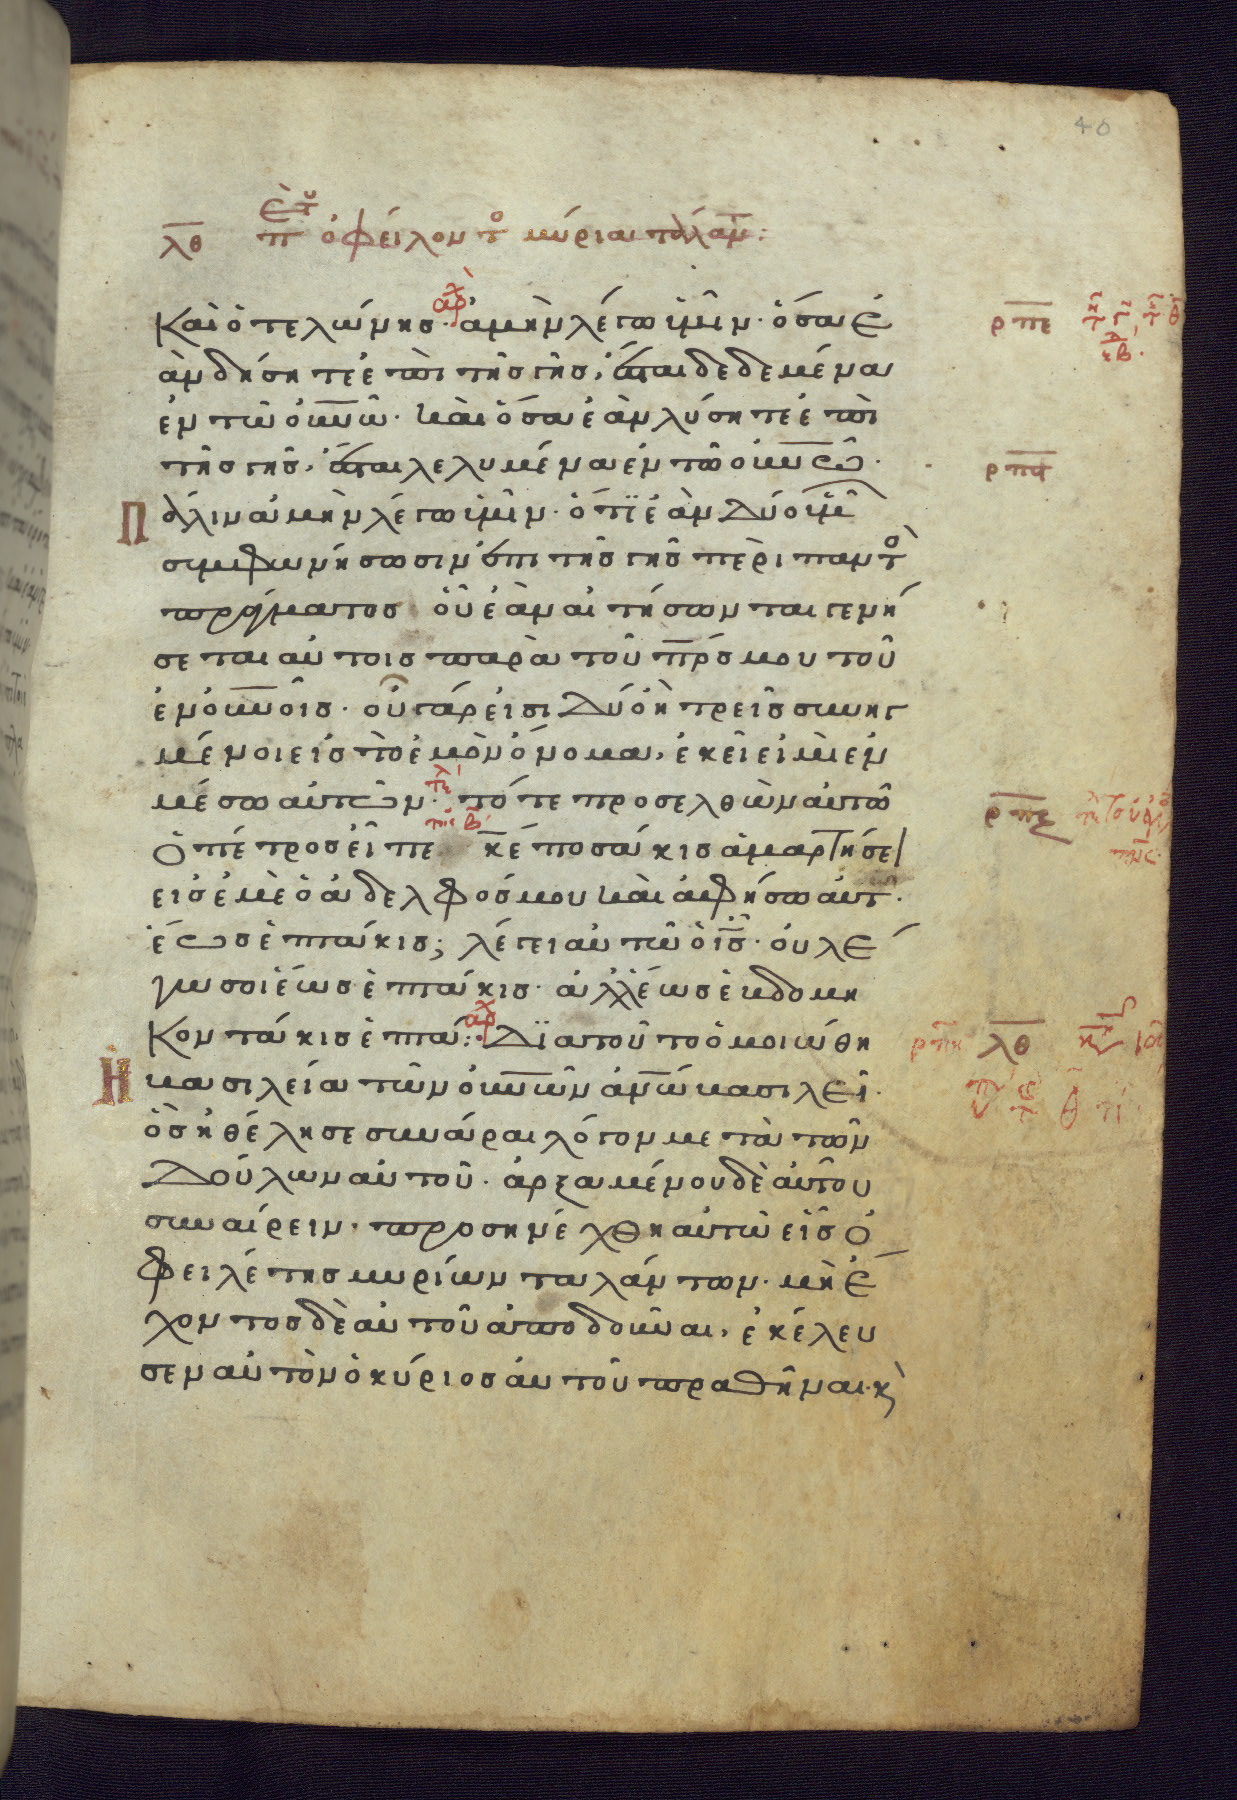 40
λθ π ὀφείλοντο μύρια τάλαν:
Καὶ ὁ τελώνης· ἀμὴν λέγω ὑμῖν· ὅσα ἐ
ὰν δήσητε ἐπὶ τῆς γῆς, ἔσται δεδεμένα
ἐν τῶ οὐνῶ· καὶ ὅσα ἐὰν λύσητε ἐπὶ
τῆς γῆς, ἔσται λελυμένα ἐν τῶ οὐνῶ·
Πάλιν ἀμὴν λέγω ὑμῖν· ὅτι ἐὰν δύο ὑμῶ
συμφωνήσωσιν ἐπὶ τῆς γῆς περὶ παντὸ
πράγματος οὗ ἐὰν αἰτήσωνται γενή
σεται αὐτοῖς παρὰ τοῦ πρς μου τοῦ
ἐν οὐνοῖς· οὗ γάρ εἰσι δύο ἢ τρεῖς συνηγ
μένοι εἰς τὸ ἐμὸν ὄνομα, ἐκεῖ εἰμὶ ἐν
μέσω αὐτῶν· τότε προσελθὼν αὐτῶ
ὁ πέτρος εἶπε κε ποσάκις ἁμαρτήσει
εἰς ἐμὲ ὁ ἀδελφός μου καὶ ἀφήσω αὐτ·
ἕως ἑπτάκις; λέγει αὐτῶ ὁ ις· οὐ λέ
γω σοι ἕως ἑπτάκις· ἀλλ' ἕως ἑβδομη
κοντάκις ἑπτά: Διὰ τοῦτο ὁμοιώθη
Ἡ βασιλεία τῶν οὐνῶν ἀνω βασιλεῖ·
ὃς ἠθέλησε συνάραι λόγον μετὰ τῶν
δούλων αὐτοῦ· ἀρξαμένου δὲ αὐτοῦ
συναίρειν· προσηνέχθη αὐτῶ εἷς ὀ
φειλέτης μυρίων ταλάντων· μὴ ἔ
χοντος δὲ αὐτοῦ ἀποδοῦναι, ἐκέλευ
σεν αὐτὸν ὁ κύριος αὐτοῦ πραθῆναι· κ
ρπε
ρπϛ
ρπζ
ρπη λθ